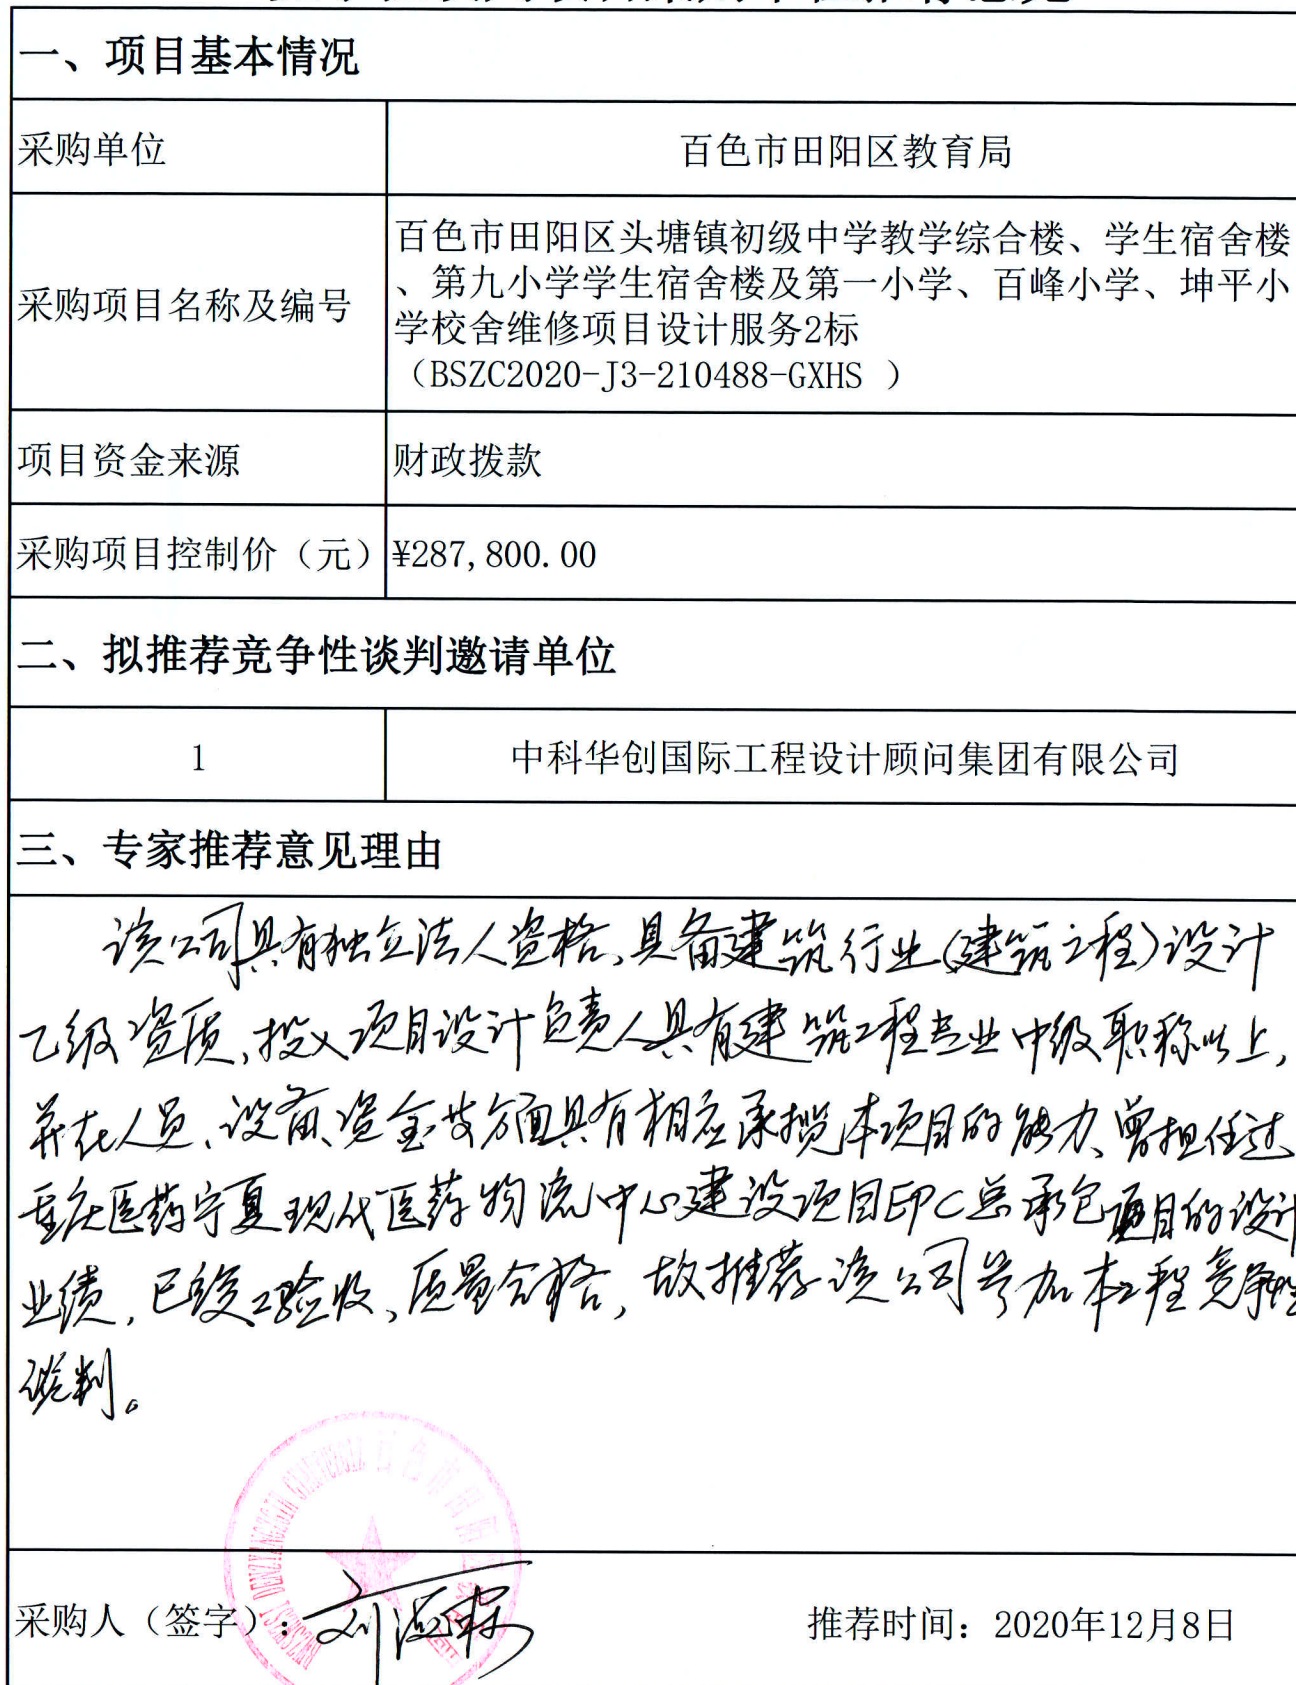 一、项目基本情况
采购单位
百色市田阳区教育局
采购项目名称及编号
百色市田阳区头塘镇初级中学教学综合楼、学生宿舍楼
、第九小学学生宿舍楼及第一小学、百峰小学、坤平小
学校舍维修项目设计服务2标
（BSZC2020-J3-210488-GXHS ）
项目资金来源
财政拨款
采购项目控制价（元）
¥287,800.00
二、拟推荐竞争性谈判邀请单位
1
中科华创国际工程设计顾问集团有限公司
三、专家推荐意见理由
该公司具有独立法人资格、具备建筑行业(建筑工程)设计
乙级资质,投入项目设计负责人具有建筑工程专业中级职称以上,
并在人员、设备、资金等方面具有相应承揽本项目的能力、曾担任过
重庆医药宁夏现代医药物流中心建设项目EPC总承包项目的设计
业绩,已竣工验收、质量合格,故推荐该公司参加本工程竞争性
谈判。
百色市田阳
采购人（签字）：
推荐时间：2020年12月8日